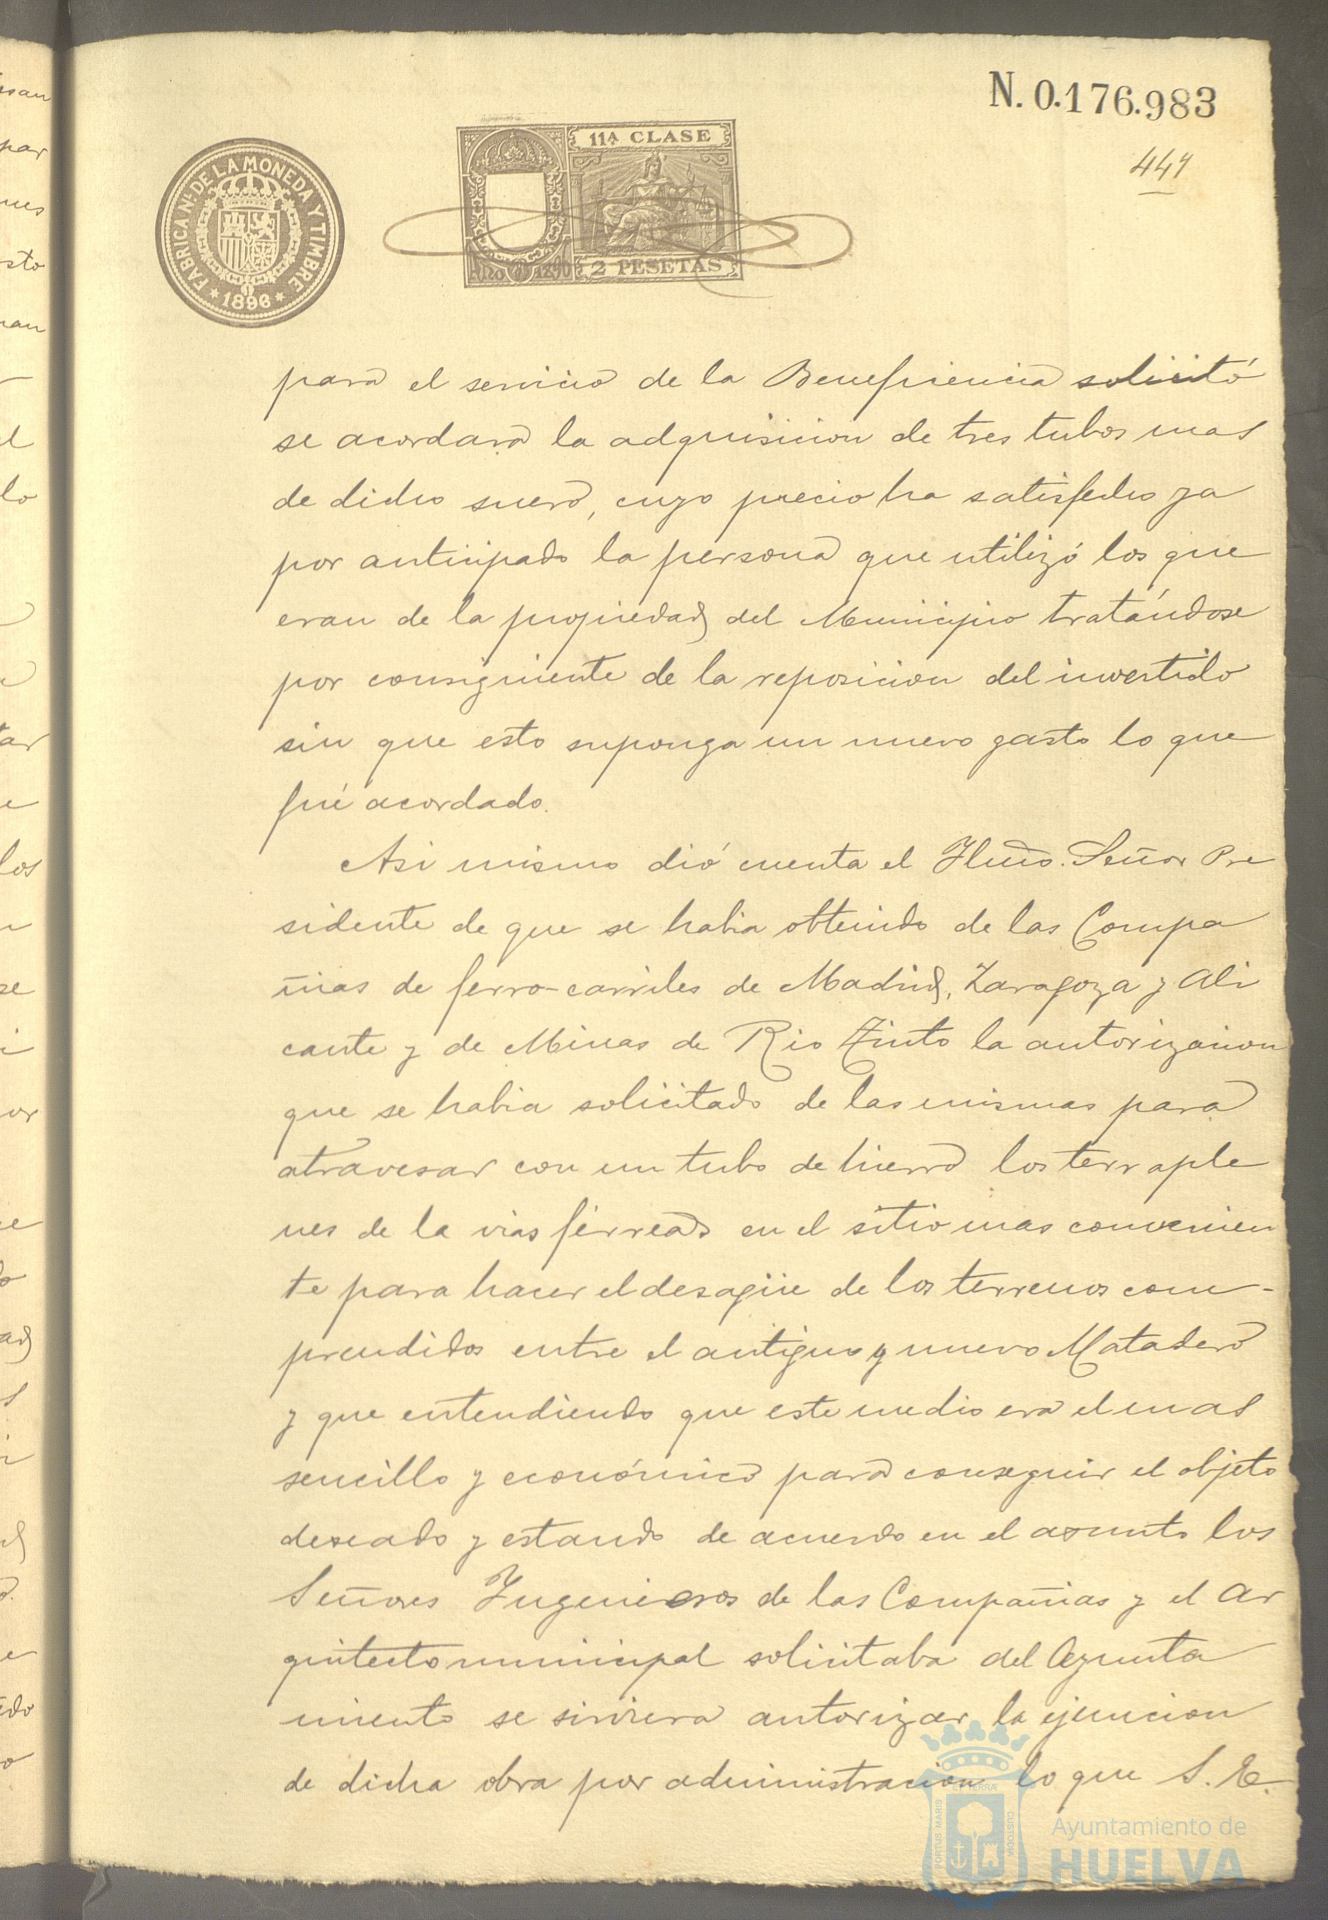 N. 0.176.983
447
FABRICA NL. DE LA MONEDA Y TIMBRE
1896
11ª CLASE
2 PESETAS
para el servicio de la Beneficiencia solicitó
se acordara la adquisicion de tres tubos mas
de dicho suero, cuyo precio ha satisfecho ya
por anticipado la persona que utilizó los que
eran de la propiedad del Municipio tratándose
por consiguiente de la reposicion del invertido
sin que esto suponga un nuevo gasto lo que
fué acordado.
Asi mismo dió cuenta el Ilmo. Señor Pre
sidente de que se habia obtenido de las Compa
ñias de ferro-carriles de Madrid, Zaragoza y Ali
cante y de Minas de Rio Tinto la autorizacion
que se habia solicitado de las mismas para
atravesar con un tubo de hierro los terraple
nes de la vias férreas en el sitio mas convenien
te para hacer el desagüe de los terrenos com-
prendidos entre el antiguo y nuevo Matadero
y que entendiendo que este medio era el mas
sencillo y económico para conseguir el objeto
deseado y estando de acuerdo en el asunto los
Señores Ingenieros de las Compañias y el Ar
quitecto municipal solicitaba del Ayunta
miento se sirviera autorizar la ejecucion
de dicha obra por administracion lo que S. E.
PORTUS MARIS ET TERRAE CUSTODIA
Ayuntamiento de
HUELVA